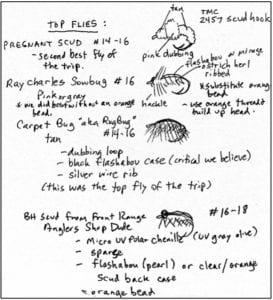 TOP FLIES:
tan
TMC
2457 scud hook
PREGNANT SCUD #14-16
- second best fly of
the trip.
pink dubbing
flashabou or mirage
ostrich herl
ribbed
Ray Charles Sowbug #16
Pink or gray
* we did best without an orange
bead.
* substitute orange
bead
hackle
- use orange thread &
build up head.
Carpet Bug "aka RugBug"
#14-16
tan
- dubbing loop
- black flashabou case (critical we believe)
- silver wire rib
(this was the top fly of the trip)
BH Scud from Front Range
Anglers Shop Dude
#16-18
- Micro UV Polar Chenille (UV gray olive)
- sparse
- flashabou (pearl) or clear/orange
scud back case
- orange bead